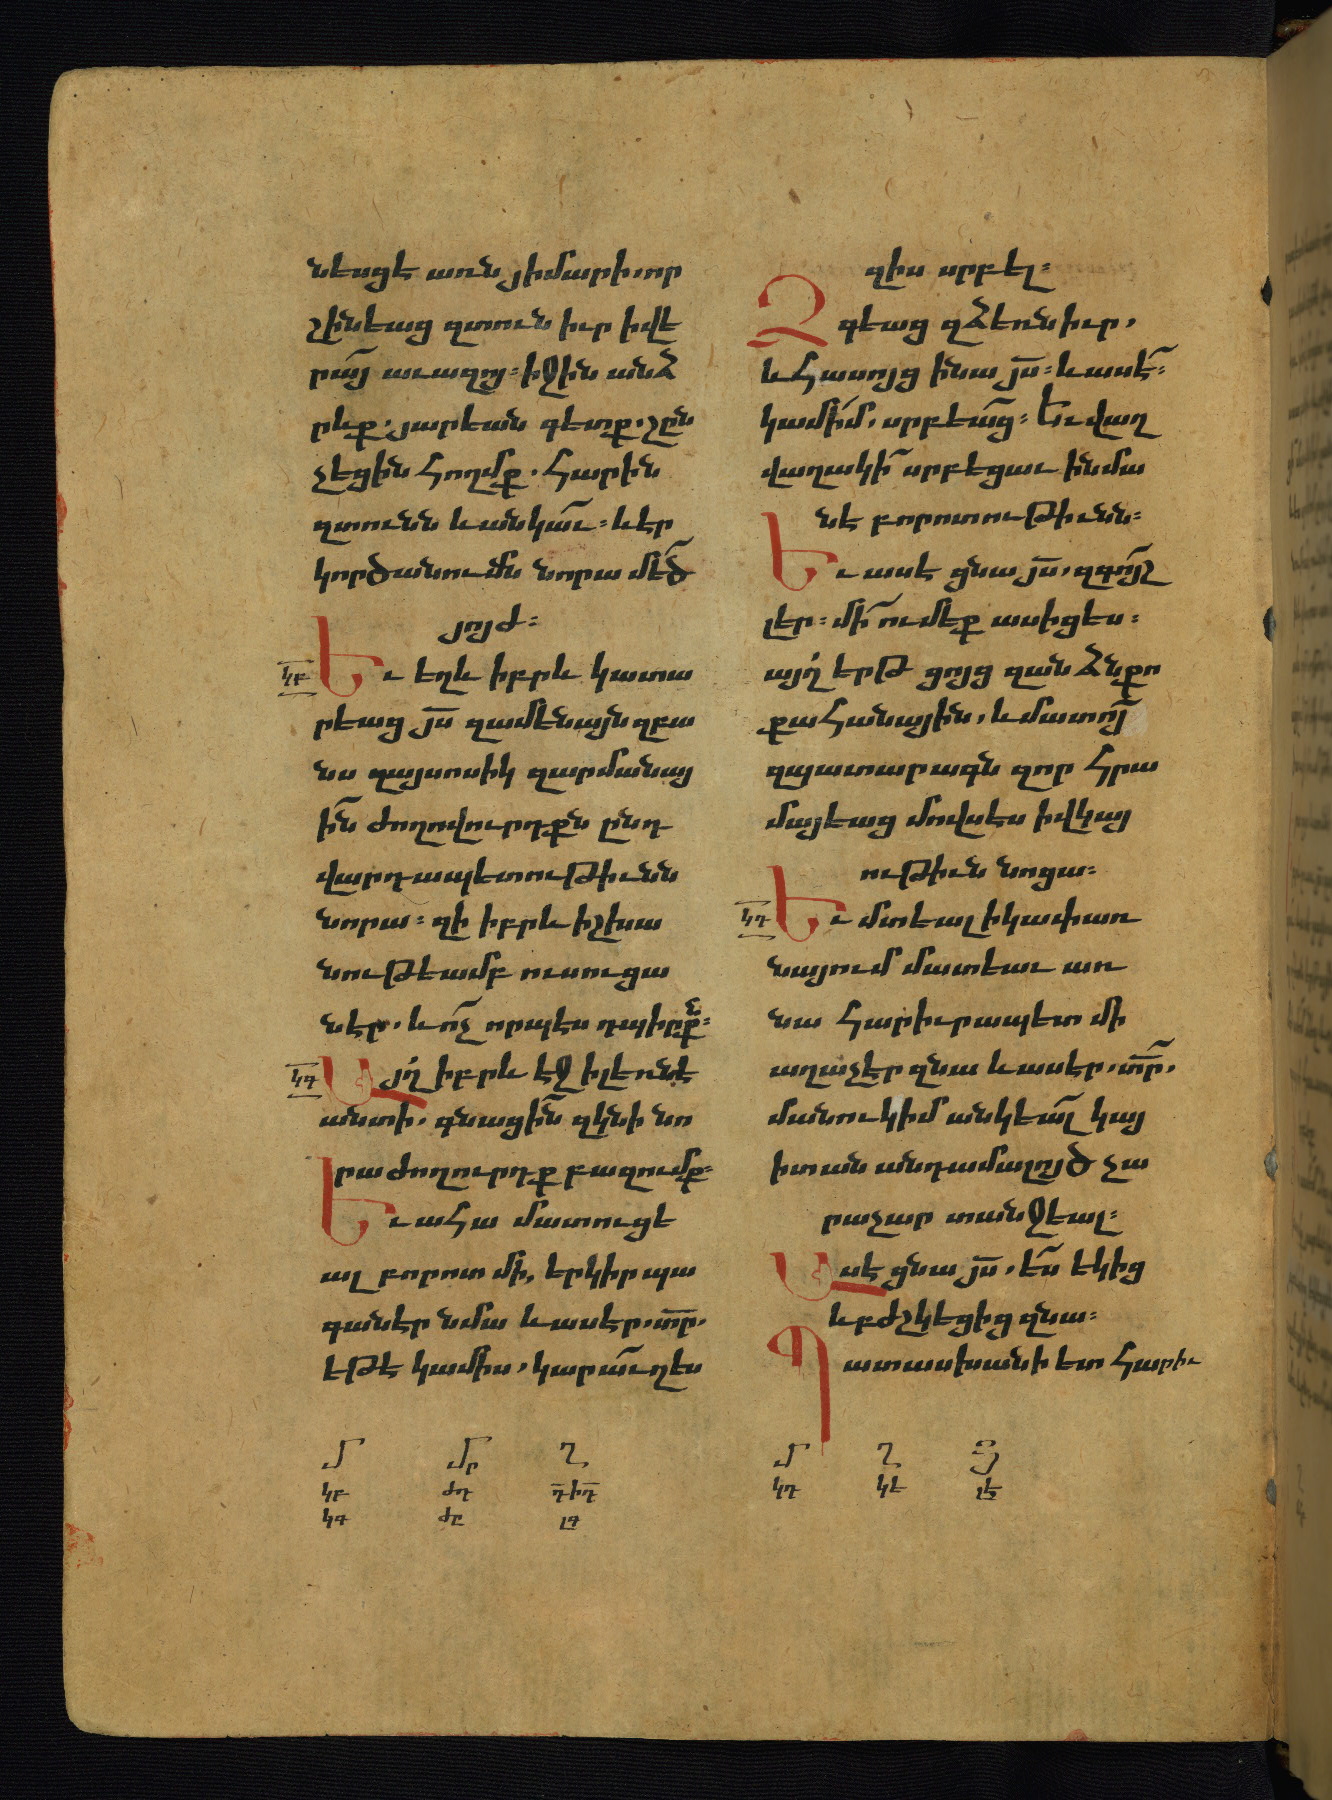 նեսցէ առն յիմարի, որ
շինեաց զտուն իւր ի վե
րա՟յ աւազոյ։ իջին անձ
րևք. յարեան գետք. շըն
չեցին հողմք. հարին
զտունն և անկա՟ւ։ և էր
կործանումն նորա մե՟ծ
յոյժ։
կբ
Եւ եղև իբրև կատա
րեաց յ՟ս զամենայն զբա
նս զայսոսիկ զարմանայ
ի՟ն ժողովուրդքն ընդ
վարդապետութիւնն
նորա։ զի իբրև իշխա
նութեամբ ուսուցա
նէր. և ո՟չ որպէս դպիրքն։
կգ
Այղ իբրև էջ ի լեռնէ
անտի. գնացի՟ն զկնի նո
րա ժողուրդք բազումք։
Եւ ահա մատուցե
ալ բորոտ մի, երկիր պա
գանէր նմա և ասէր. տ՟ր.
եթէ կամիս. կարա՟ւղ ես
զիս սրբել։
Ձգեաց զձեռն իւր.
և հասոյց ի նա յ՟ս։ և ասէ՟։
կամի՟մ. սրբեա՟ց։ Եւ վաղ
վաղակի՟ սրբեցաւ ի նմա
նէ բորոտութիւնն։
Եւ ասէ ցնա յ՟ս. զգո՟յշ
լեր։ մի՟ ումեք ասիցես։
այղ երթ ցոյց զանձն քո
քահանային. և մատո՟յ
զպատարագն զոր հրա
մայեաց մովսէս ի վկայ
ութիւն նոցա։
կդ
Եւ մտեալ ի կափառ
նայում մատեաւ առ
նա հարիւրապետ մի
աղաչէր զնա և ասէր. տ՟ր.
մանուկ իմ անկեա՟լ կայ
ի տան անդամալոյծ չա
րաչար տանջեալ։
Ասէ ցնա յ՟ս. ե՟ս եկից
և բժշկեցից զնա։
Պատասխանի ետ հարիւ
մ մր ղ
կբ ժդ դ ի դ
կգ ժը լգ
մ ղ յ
կդ կե լէ